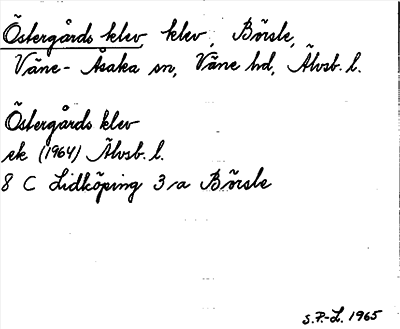 Östergårds klev, klev, Börsle,
Väne-Åsaka sn, Väne hd, Älvsb. l.
Östergårds klev
ek (1964) Älvsb. l.
8 C Lidköping 3 a Börsle
S.F.-L. 1965